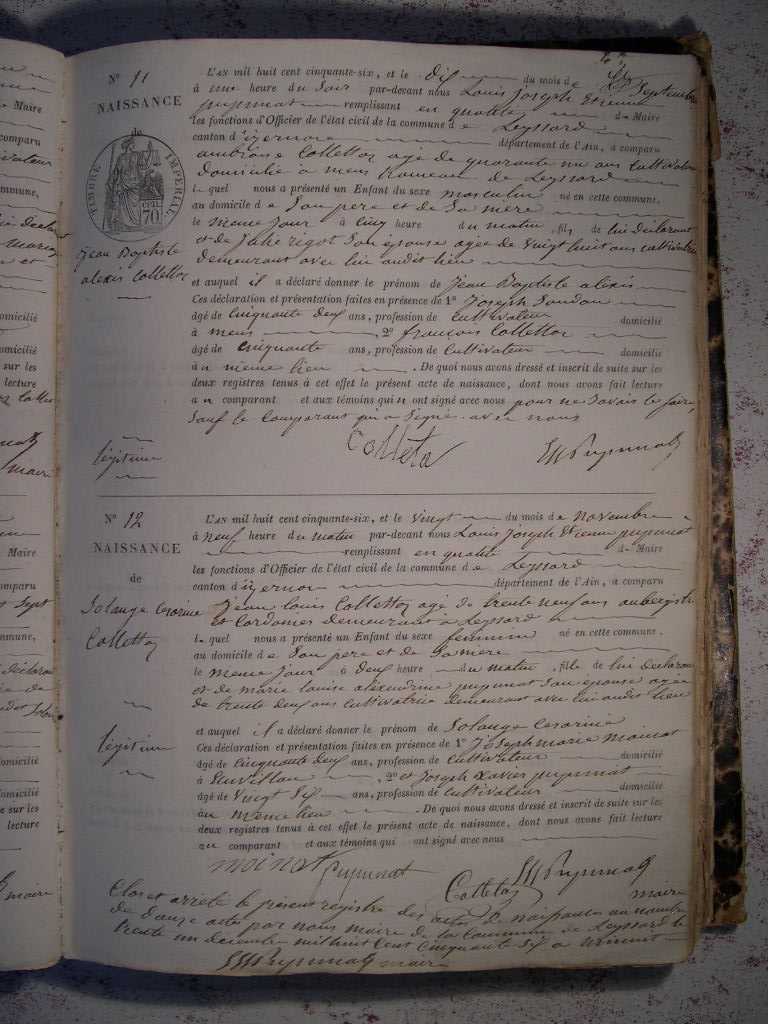 N° 11
NAISSANCE
de
TIMBRE IMPÉRIAL
70 cen.
jean Baptiste
alexis Collettaz
légitime
L'AN mil huit cent cinquante-six, et le dix du mois de Septembre
à une heure du Soir par-devant nous Louis Joseph Etienne
pupunat remplissant en qualité de Maire
les fonctions d'Officier de l'état civil de la commune de Leyssard
canton d'izernore département de l'Ain, a comparu
ambroise Collettaz agé de quarante un ans Cultivateur
domicilié a mens hameau de Leyssard
lequel nous a présenté un Enfant du sexe masculin né en cette commune,
au domicile de Son pere et de Sa mère
le meme Jour à Cinq heure du matin, fils de lui déclarant
et de Julie rigot Son épouse agée de vingt huit ans cultivatrice
demeurant avec lui audit lieu
et auquel il a déclaré donner le prénom de Jean Baptiste alexis
Ces déclaration et présentation faites en présence de 1° Joseph
âgé de Cinquante deux ans, profession de Cultivateur domicilié
à mens 2° françois Collettaz
âgé de Cinquante ans, profession de Cultivateur domicilié
au meme lieu . De quoi nous avons dressé et inscrit de suite sur les
deux registres tenus à cet effet le présent acte de naissance, dont nous avons fait lecture
au comparant et aux témoins qui n ont signé avec nous pour ne Savoir le faire,
Sauf le Comparant qui a Signé avec nous
Colleta
N° 12
NAISSANCE
de
Solange Cesarine
Collettaz
légitime
L'AN mil huit cent cinquante-six, et le vingt du mois de novembre
à neuf heure du matin par-devant nous Louis Joseph Etienne pupunat
remplissant en qualité de Maire
les fonctions d'Officier de l'état civil de la commune de Leyssard
canton d'izernore département de l'Ain, a comparu
Jean Louis Collettaz agé de trente neuf ans aubergiste
et Cordonier demeurant a Leyssard
lequel nous a présenté un Enfant du sexe feminin né en cette commune,
au domicile de Son pere et de Sa mere
le meme Jour à deux heure du matin, fille de lui déclarant
et de marie louise alexendrine pupunat Son épouse agée
de trente deux ans cultivatrice demeurant avec lui audit lieu
et auquel il a déclaré donner le prénom de Solange Cesarine
Ces déclaration et présentation faites en présence de 1° Joseph marie moinat
âgé de Cinquante deux ans, profession de Cultivateur domicilié
à , 2° et Joseph Xavier pupunat
âgé de Vingt Six ans, profession de Cultivateur domicilié
au meme lieu . De quoi nous avons dressé et inscrit de suite sur les
deux registres tenus à cet effet le présent acte de naissance, dont nous avons fait lecture
au comparant et aux témoins qui ont signé avec nous
moinat pupunat Colletaz Pupunat maire
Clos et arrêté le présent registre des actes de naissance au nombre
de douze acte par nous maire de la Commune de Leyssard le
trente un decembre mil huit Cent Cinquante Six a minuit
Pupunat maire